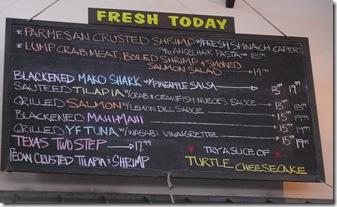 FRESH TODAY
* PARMESAN CRUSTED SHRIMP w/ FRESH SPINACH, CAPERS
& ANGEL HAIR PASTA
* LUMP CRAB MEAT, BOILED SHRIMP & SMOKED
SALMON SALAD
BLACKENED MAKO SHARK w/ PINEAPPLE SALSA
SAUTEED TILAPIA w/ CRAB & CRAWFISH NUECES SAUCE
GRILLED SALMON w/ LEMON DILL SAUCE
BLACKENED MAHI MAHI
GRILLED YF TUNA w/ WASABI VINAIGRETTE
TEXAS TWO STEP → 17.99
PECAN CRUSTED TILAPIA & SHRIMP
* TRY A SLICE OF *
TURTLE CHEESECAKE